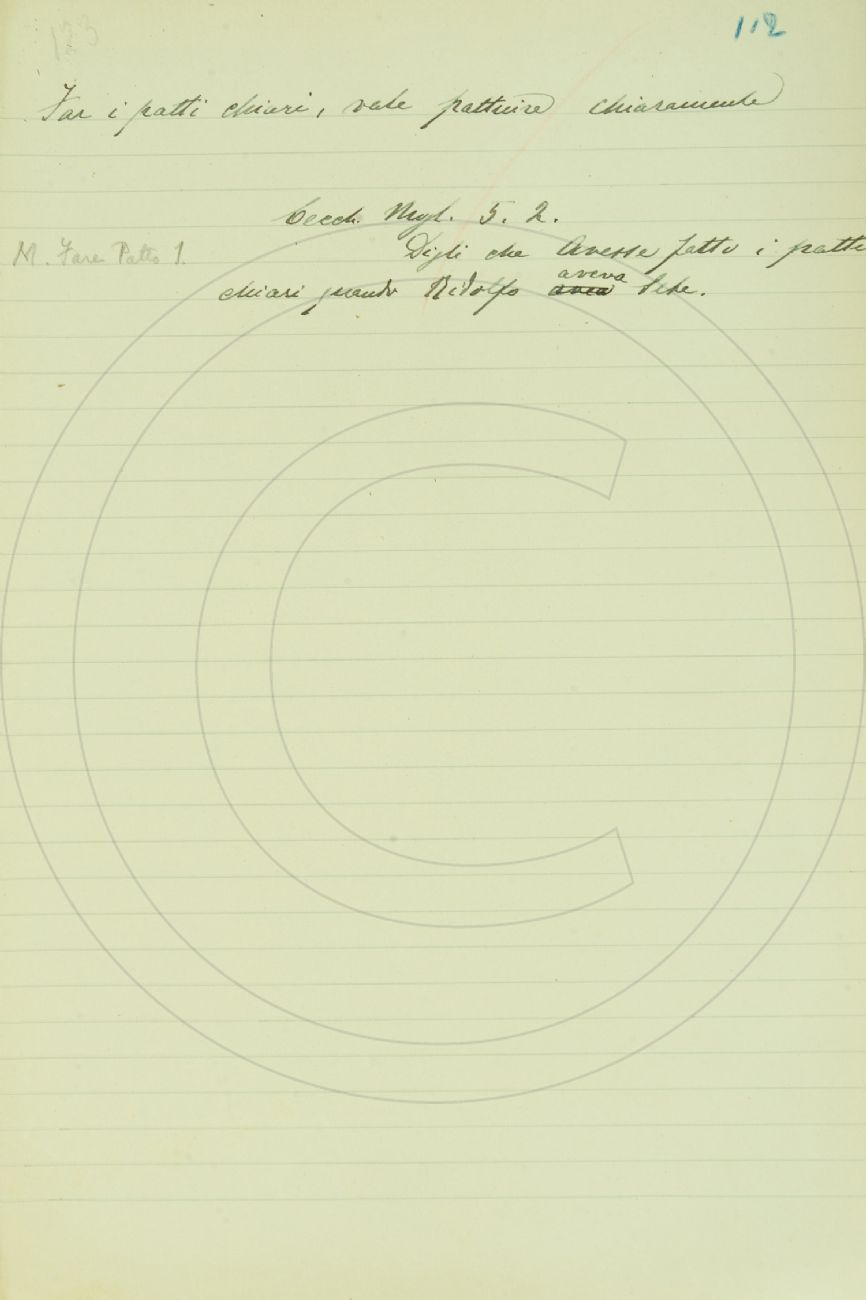 112
Far i patti chiari, vale pattuire chiaramente
Cecch. Mogl. 5. 2.
M. Fare Patto 1. Digli che Avesse fatto i patti
aveva
chiari quando Ridolfo avea Sete.